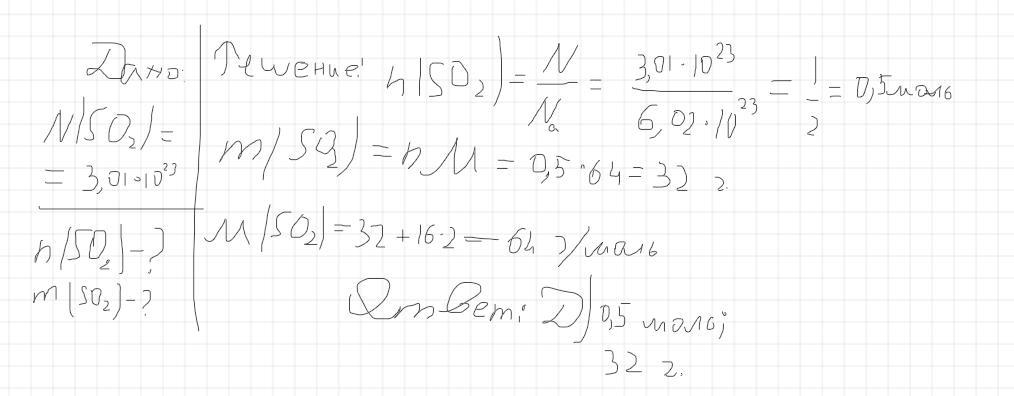 Дано:
N(SO₂) =
= 3,01·10²³
n(SO₂) - ?
m(SO₂) - ?
Решение:
n(SO₂) = N/Nₐ = 3,01·10²³/6,02·10²³ = 1/2 = 0,5 моль
m(SO₂) = nM = 0,5·64 = 32 г.
M(SO₂) = 32 + 16·2 = 64 г/моль
Ответ: D) 0,5 моль;
32 г.